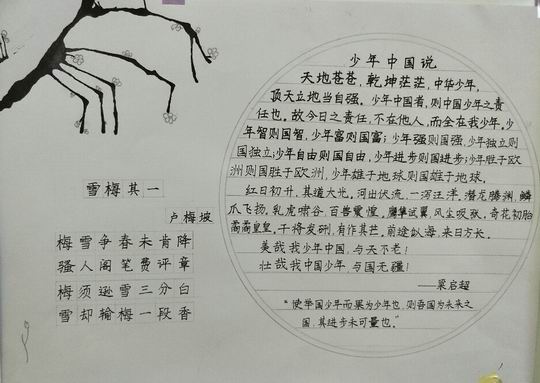 雪梅其一
卢梅坡
梅雪争春未肯降
骚人阁笔费评章
梅须逊雪三分白
雪却输梅一段香
少年中国说
天地苍苍,乾坤茫茫,中华少年,
顶天立地当自强。少年中国者,则中国少年之责
任也。故今日之责任,不在他人,而全在我少年。少
年智则国智,少年富则国富;少年强则国强,少年独立则
国独立;少年自由则国自由,少年进步则国进步;少年胜于欧
洲则国胜于欧洲,少年雄于地球则国雄于地球。
红日初升,其道大光。河出伏流,一泻汪洋。潜龙腾渊,鳞
爪飞扬,乳虎啸谷,百兽震惶,鹰隼试翼,风尘吸张,奇花初胎
矞矞皇皇。干将发硎,有作其芒。前途似海,来日方长。
美哉我少年中国,与天不老!
壮哉我中国少年,与国无疆!
——梁启超
“使举国少年而果为少年也,则吾国为未来之
国,其进步未可量也。”